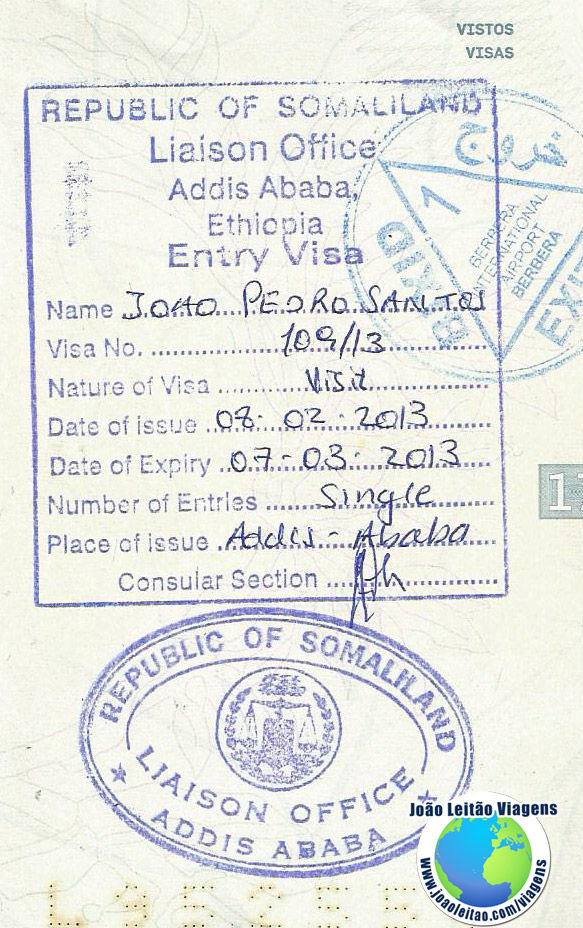 VISTOS
VISAS
REPUBLIC OF SOMALILAND
Liaison Office
Addis Ababa,
Ethiopia
Entry Visa
Name JOAO PEDRO SANTOS
Visa No. 109/13
Nature of Visa Visit
Date of issue 08-02-2013
Date of Expiry 07-03-2013
Number of Entries Single
Place of issue Addis-Ababa
Consular Section
خروج
1
BERBERA
INTERNATIONAL
AIRPORT
BERBERA
EXIT
17
REPUBLIC OF SOMALILAND
LIAISON OFFICE
ADDIS ABABA
João Leitão Viagens
www.joaoleitao.com/viagens